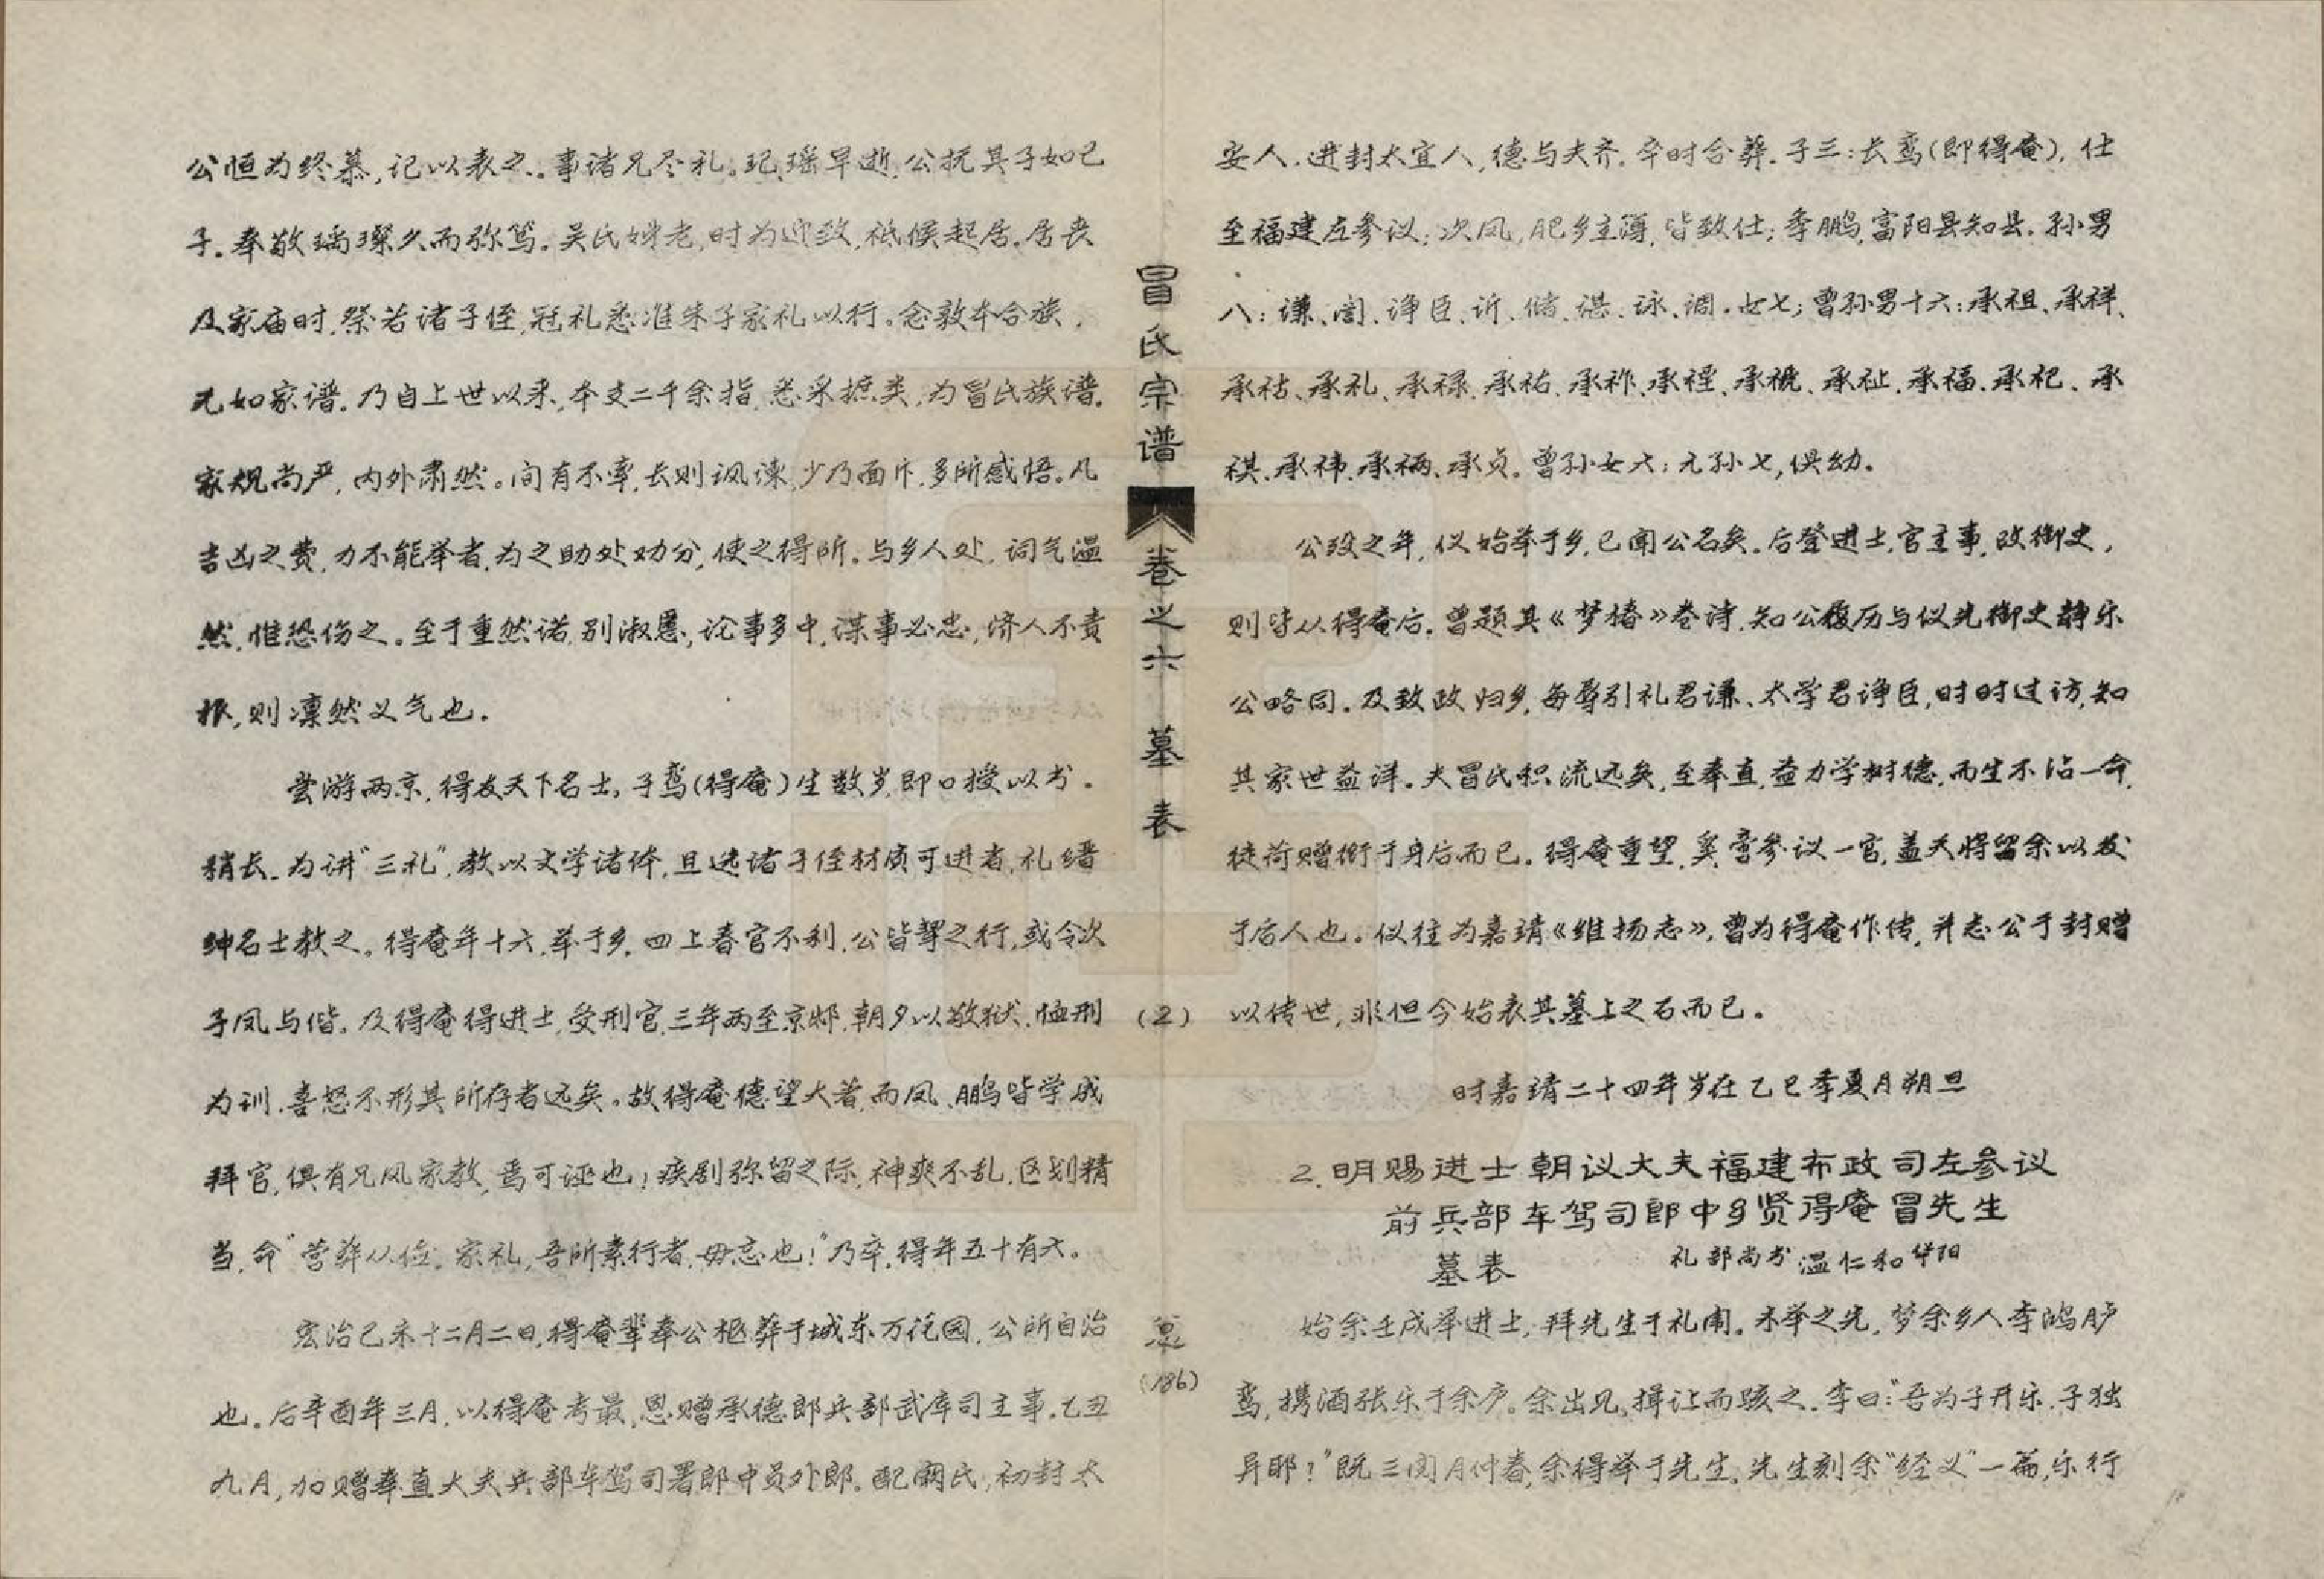 公恒为终慕,记以表之。事诸兄尽礼。玘、瑶早逝,公抚其子如己
子。奉敬瑀璨久而弥笃。吴氏姊老,时为迎致,祗候起居。居丧
及家庙时,祭若诸子侄,冠礼悉准朱子家礼以行。念敦本合族,
无如家谱。乃自上世以来,本支二千余指,悉采摭类,为冒氏族谱。
家规尚严,内外肃然。间有不率,长则讽谏,少乃面斥,多所感悟。凡
吉凶之费,力不能举者,为之助处劝分,使之得所。与乡人处,词气温
然,惟恐伤之。至于重然诺,别淑慝,论事多中,谋事必忠,济人不责
报,则凛然义气也。
尝游两京,得友天下名士,子鸾(得庵)生数岁,即口授以书。
稍长,为讲“三礼”,教以文学诸体,且选诸子侄材质可进者,礼缙
绅名士教之。得庵年十六,举于乡,四上春官不利,公皆挈之行,或令次
子凤与偕。及得庵得进士,受刑官,三年两至京邸,朝夕以敬狱、恤刑
为训,喜怒不形其所存者远矣。故得庵德望大著,而凤、鹏皆学成
拜官,俱有兄风家教,焉可诬也!疾剧弥留之际,神爽不乱,区划精
当,命“营葬从俭,家礼,吾所素行者,毋忘也!”乃卒,得年五十有六。
宏治己未十二月二日,得庵辈奉公柩葬于城东万花园,公所自治
也。后辛酉年三月,以得庵考最,恩赠承德郎兵部武库司主事。乙丑
九月,加赠奉直大夫兵部车驾司署郎中员外郎。配阚氏,初封太
冒氏宗谱
卷之六
墓表
(2)
(186)
安人,进封太宜人,德与夫齐,卒时合葬。子三:长鸾(即得庵),仕
至福建左参议;次凤,肥乡主簿,皆致仕;季鹏,富阳县知县。孙男
八:谦、訚、诤臣、䜣、储、谌、咏、调。女七;曾孙男十六:承祖、承祥、
承祜、承礼、承禄、承祐、承祚、承禋、承祧、承祉、承福、承祀、承
祺、承祎、承祸、承贞。曾孙女六;元孙七,俱幼。
公殁之年,仪始举于乡,已闻公名矣。后登进士,官主事,改御史,
则皆从得庵后。曾题其《梦椿》卷诗,知公履历与仪先御史静乐
公略同。及致政归乡,每辱引礼君谦、太学君诤臣,时时过访,知
其家世益详。夫冒氏积流远矣,至奉直,益力学树德,而生不沾一命,
徒荷赠衔于身后而已。得庵重望,奚啻参议一官,盖天将留余以发
于后人也。仪往为嘉靖《维扬志》,曾为得庵作传,并志公于封赠
以传世,非但今始表其墓上之石而已。
时嘉靖二十四年岁在乙巳季夏月朔旦
2.明赐进士朝议大夫福建布政司左参议
前兵部车驾司郎中乡贤得庵冒先生
墓表 礼部尚书温仁和华阳
始余壬戌举进士,拜先生于礼闱。未举之先,梦余乡人李鸿胪
鸾,携酒张乐于余庐。余出见,揖让而骇之。李曰:“吾为子开乐,子独
异耶?”既三阅月仲春,余得举于先生。先生刻余“经义”一篇,乐行